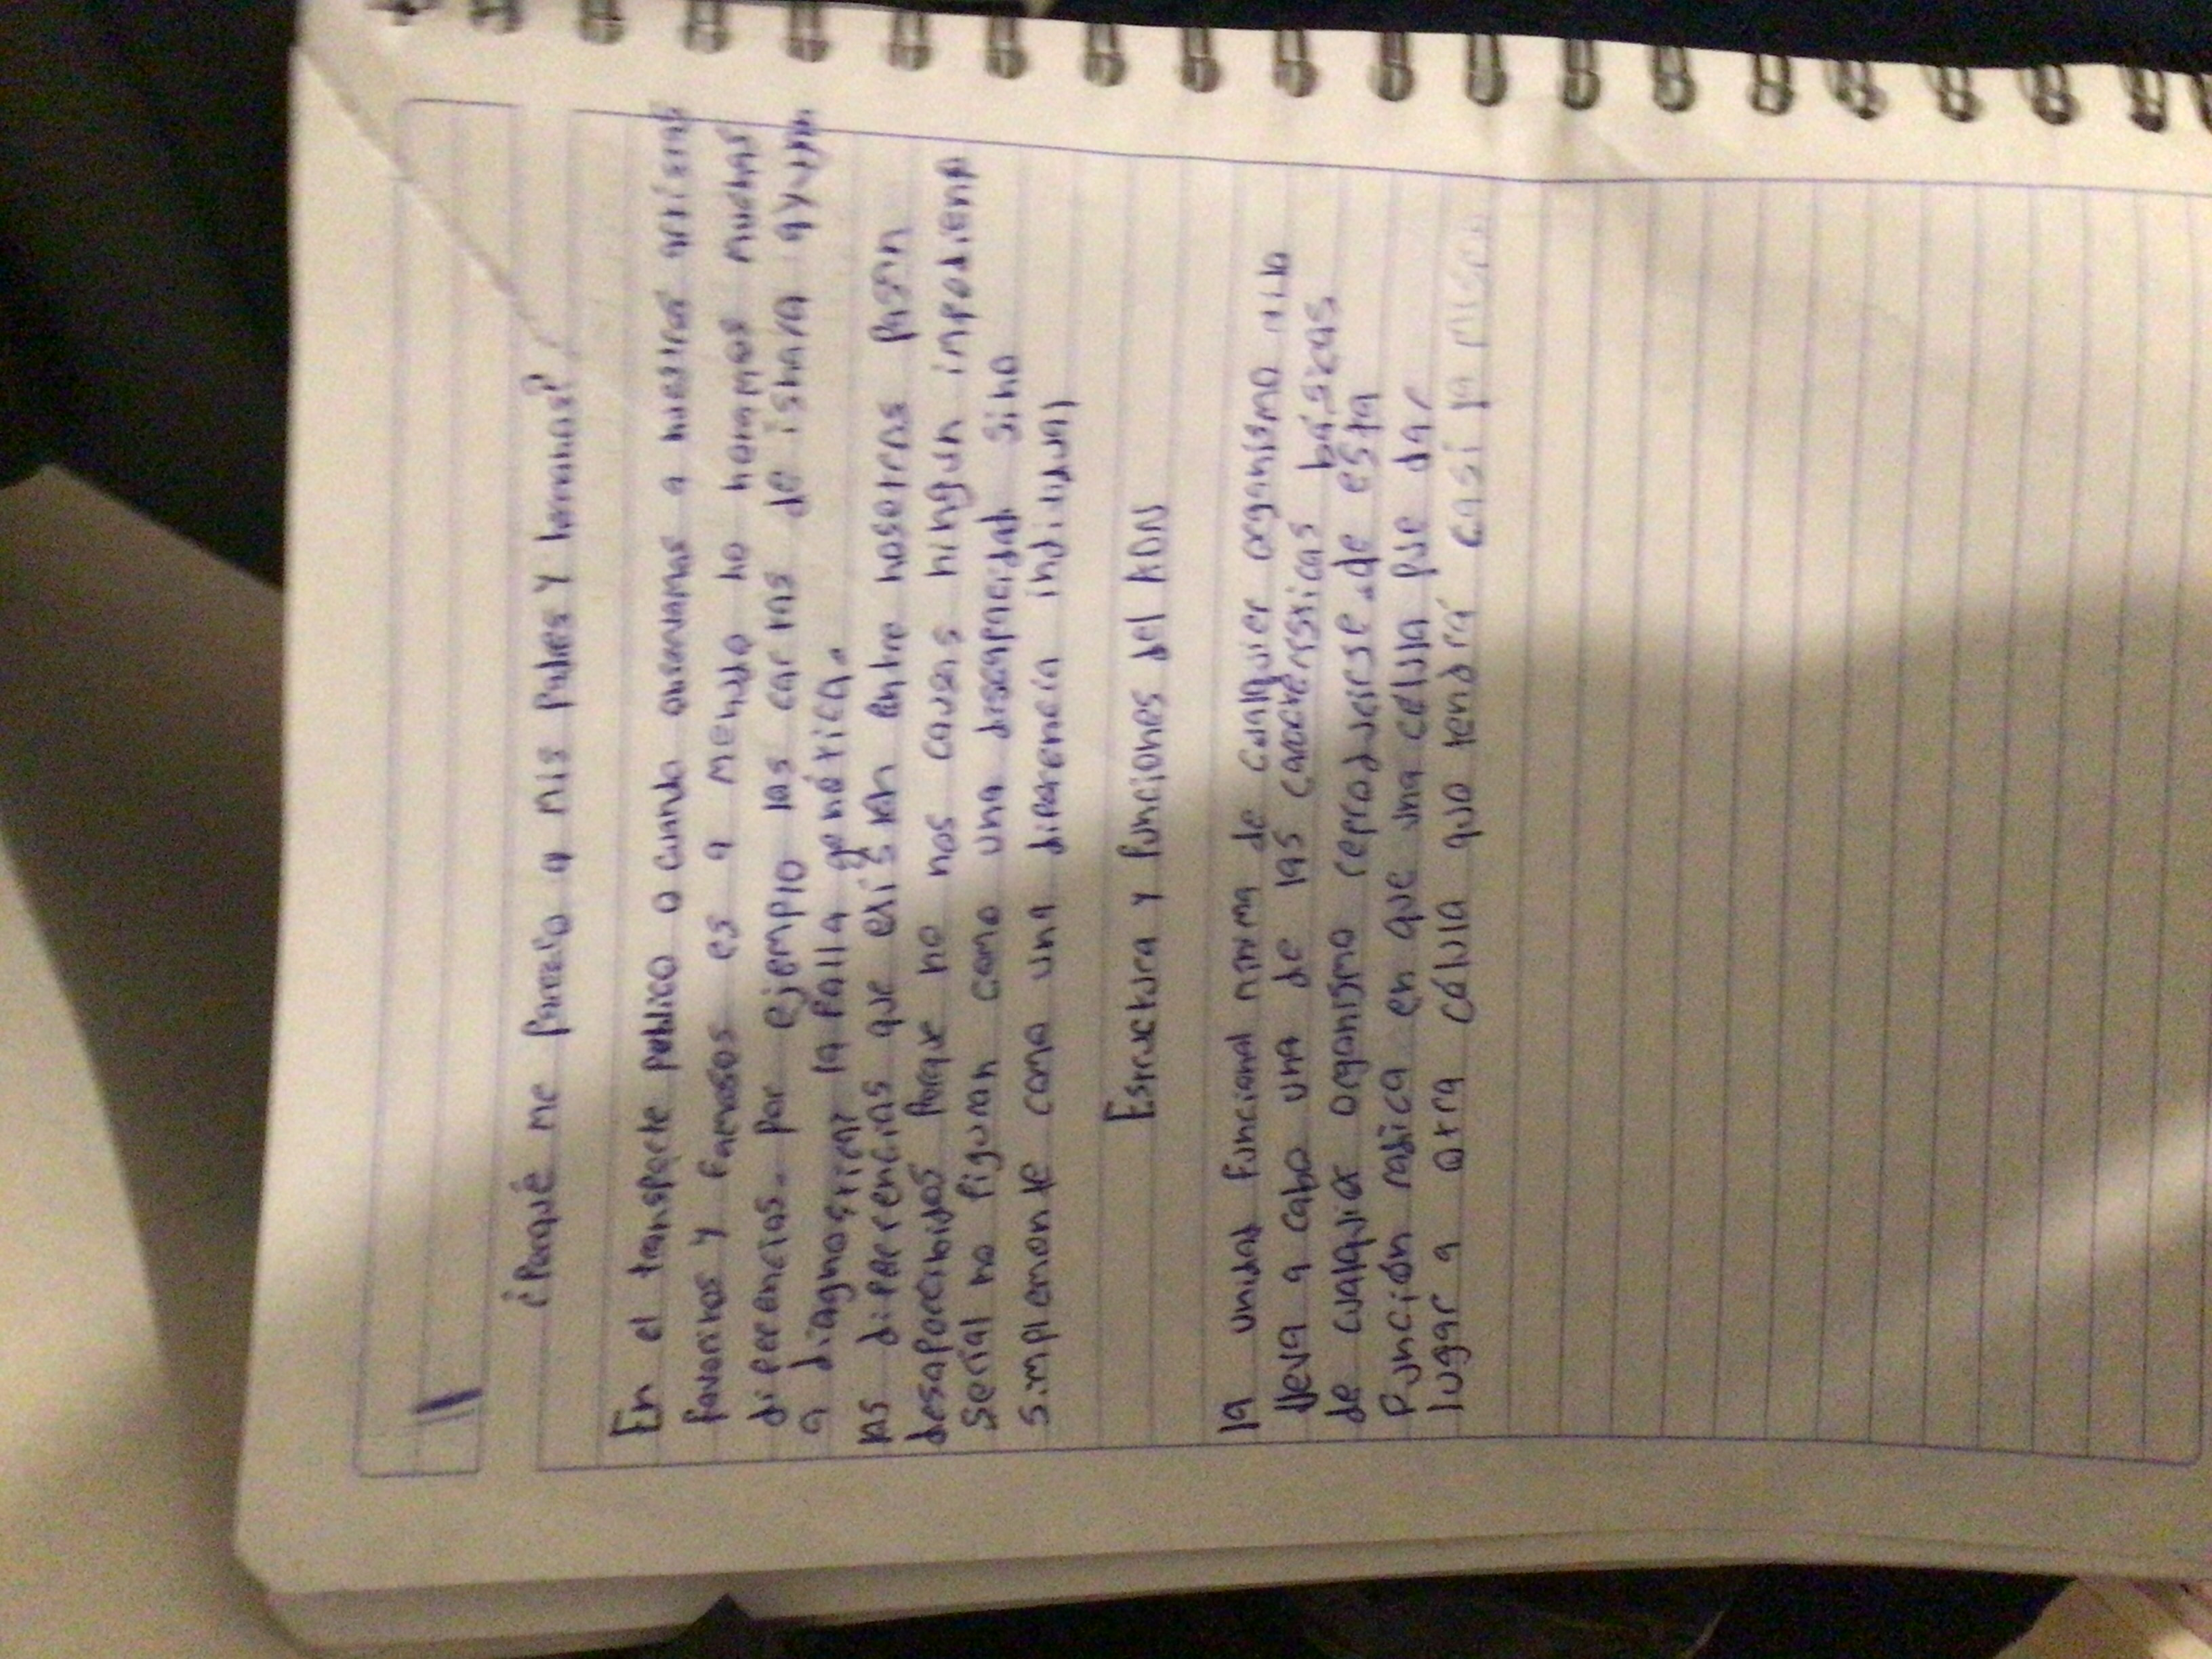 ¿Porqué me parezco a mis padres y hermanos?
En el transporte público o cuando observamos a nuestros artistas
favoritos y famosos es a menudo no horamos muchas
diferencias. Por ejemplo las cartas de ishara ayudan
a diagnosticar la falla genética.
las diferrencias que existen entre nosotros pasan
desapercibidos porque no nos causas ningun impedimento
serial no figuran como una discapacidad sino
simplemente como una diferencia individual
Estructura y funciones del ADN
la unidad funcional mínima de cualquier organismo
lleva a cabo una de las características básicas
de cualquier organismo reproducirse de esta
función radica en que una celula pue dar
lugar a otra célula que tendrá casi la misma